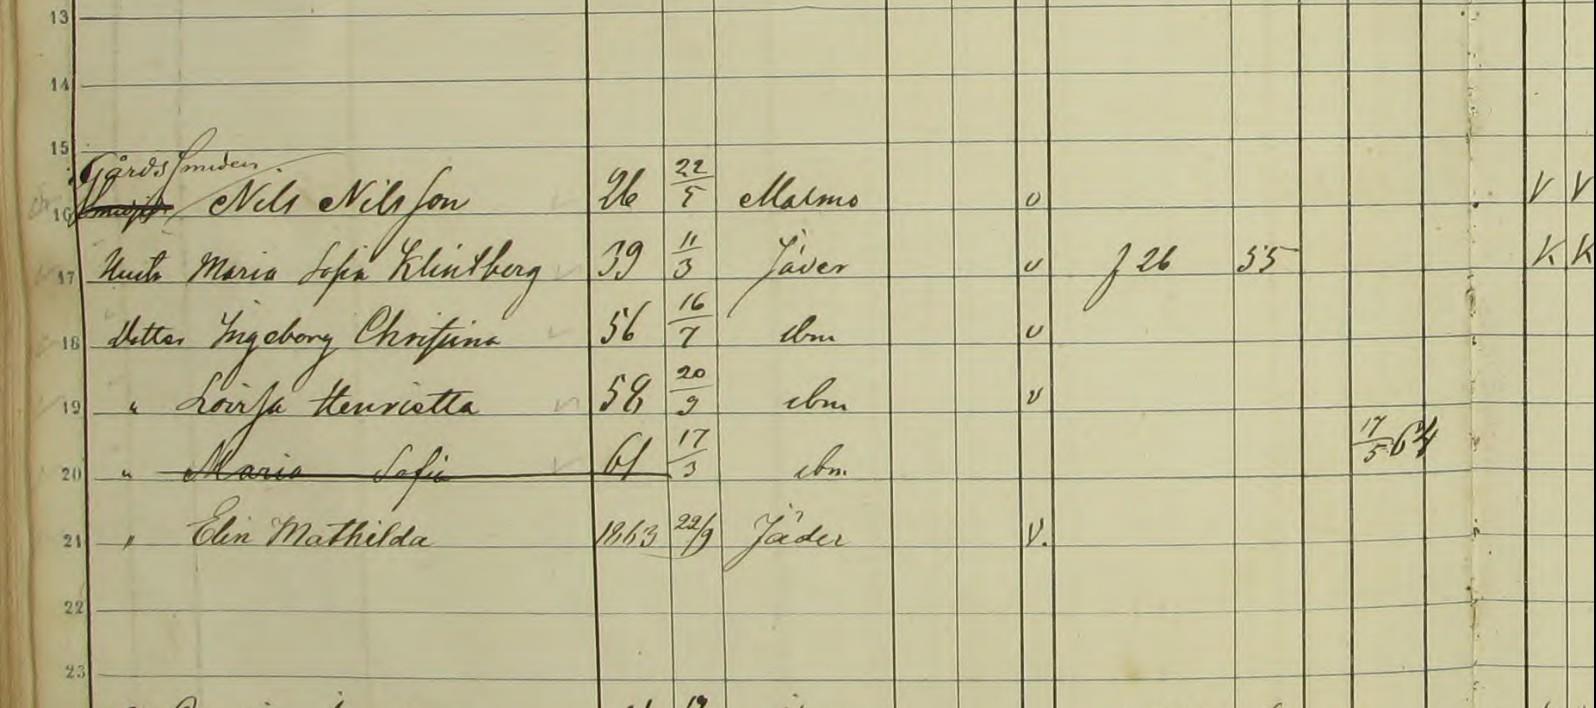 13
14
15
Gårds Smeden
16 Nils Nilsson 26 22/5 Malmö v V V
17 Hustr Maria Sofia Klintberg 39 11/3 Jäder v f 26 55 K K
18 Dotter Ingeborg Christina 56 16/7 ibm v
19 " Lovisa Henrietta 58 20/9 ibm v
20 " Maria Sofia 61 17/3 ibm 17/5 64
21 " Elin Mathilda 1863 22/9 Jäder V.
22
23